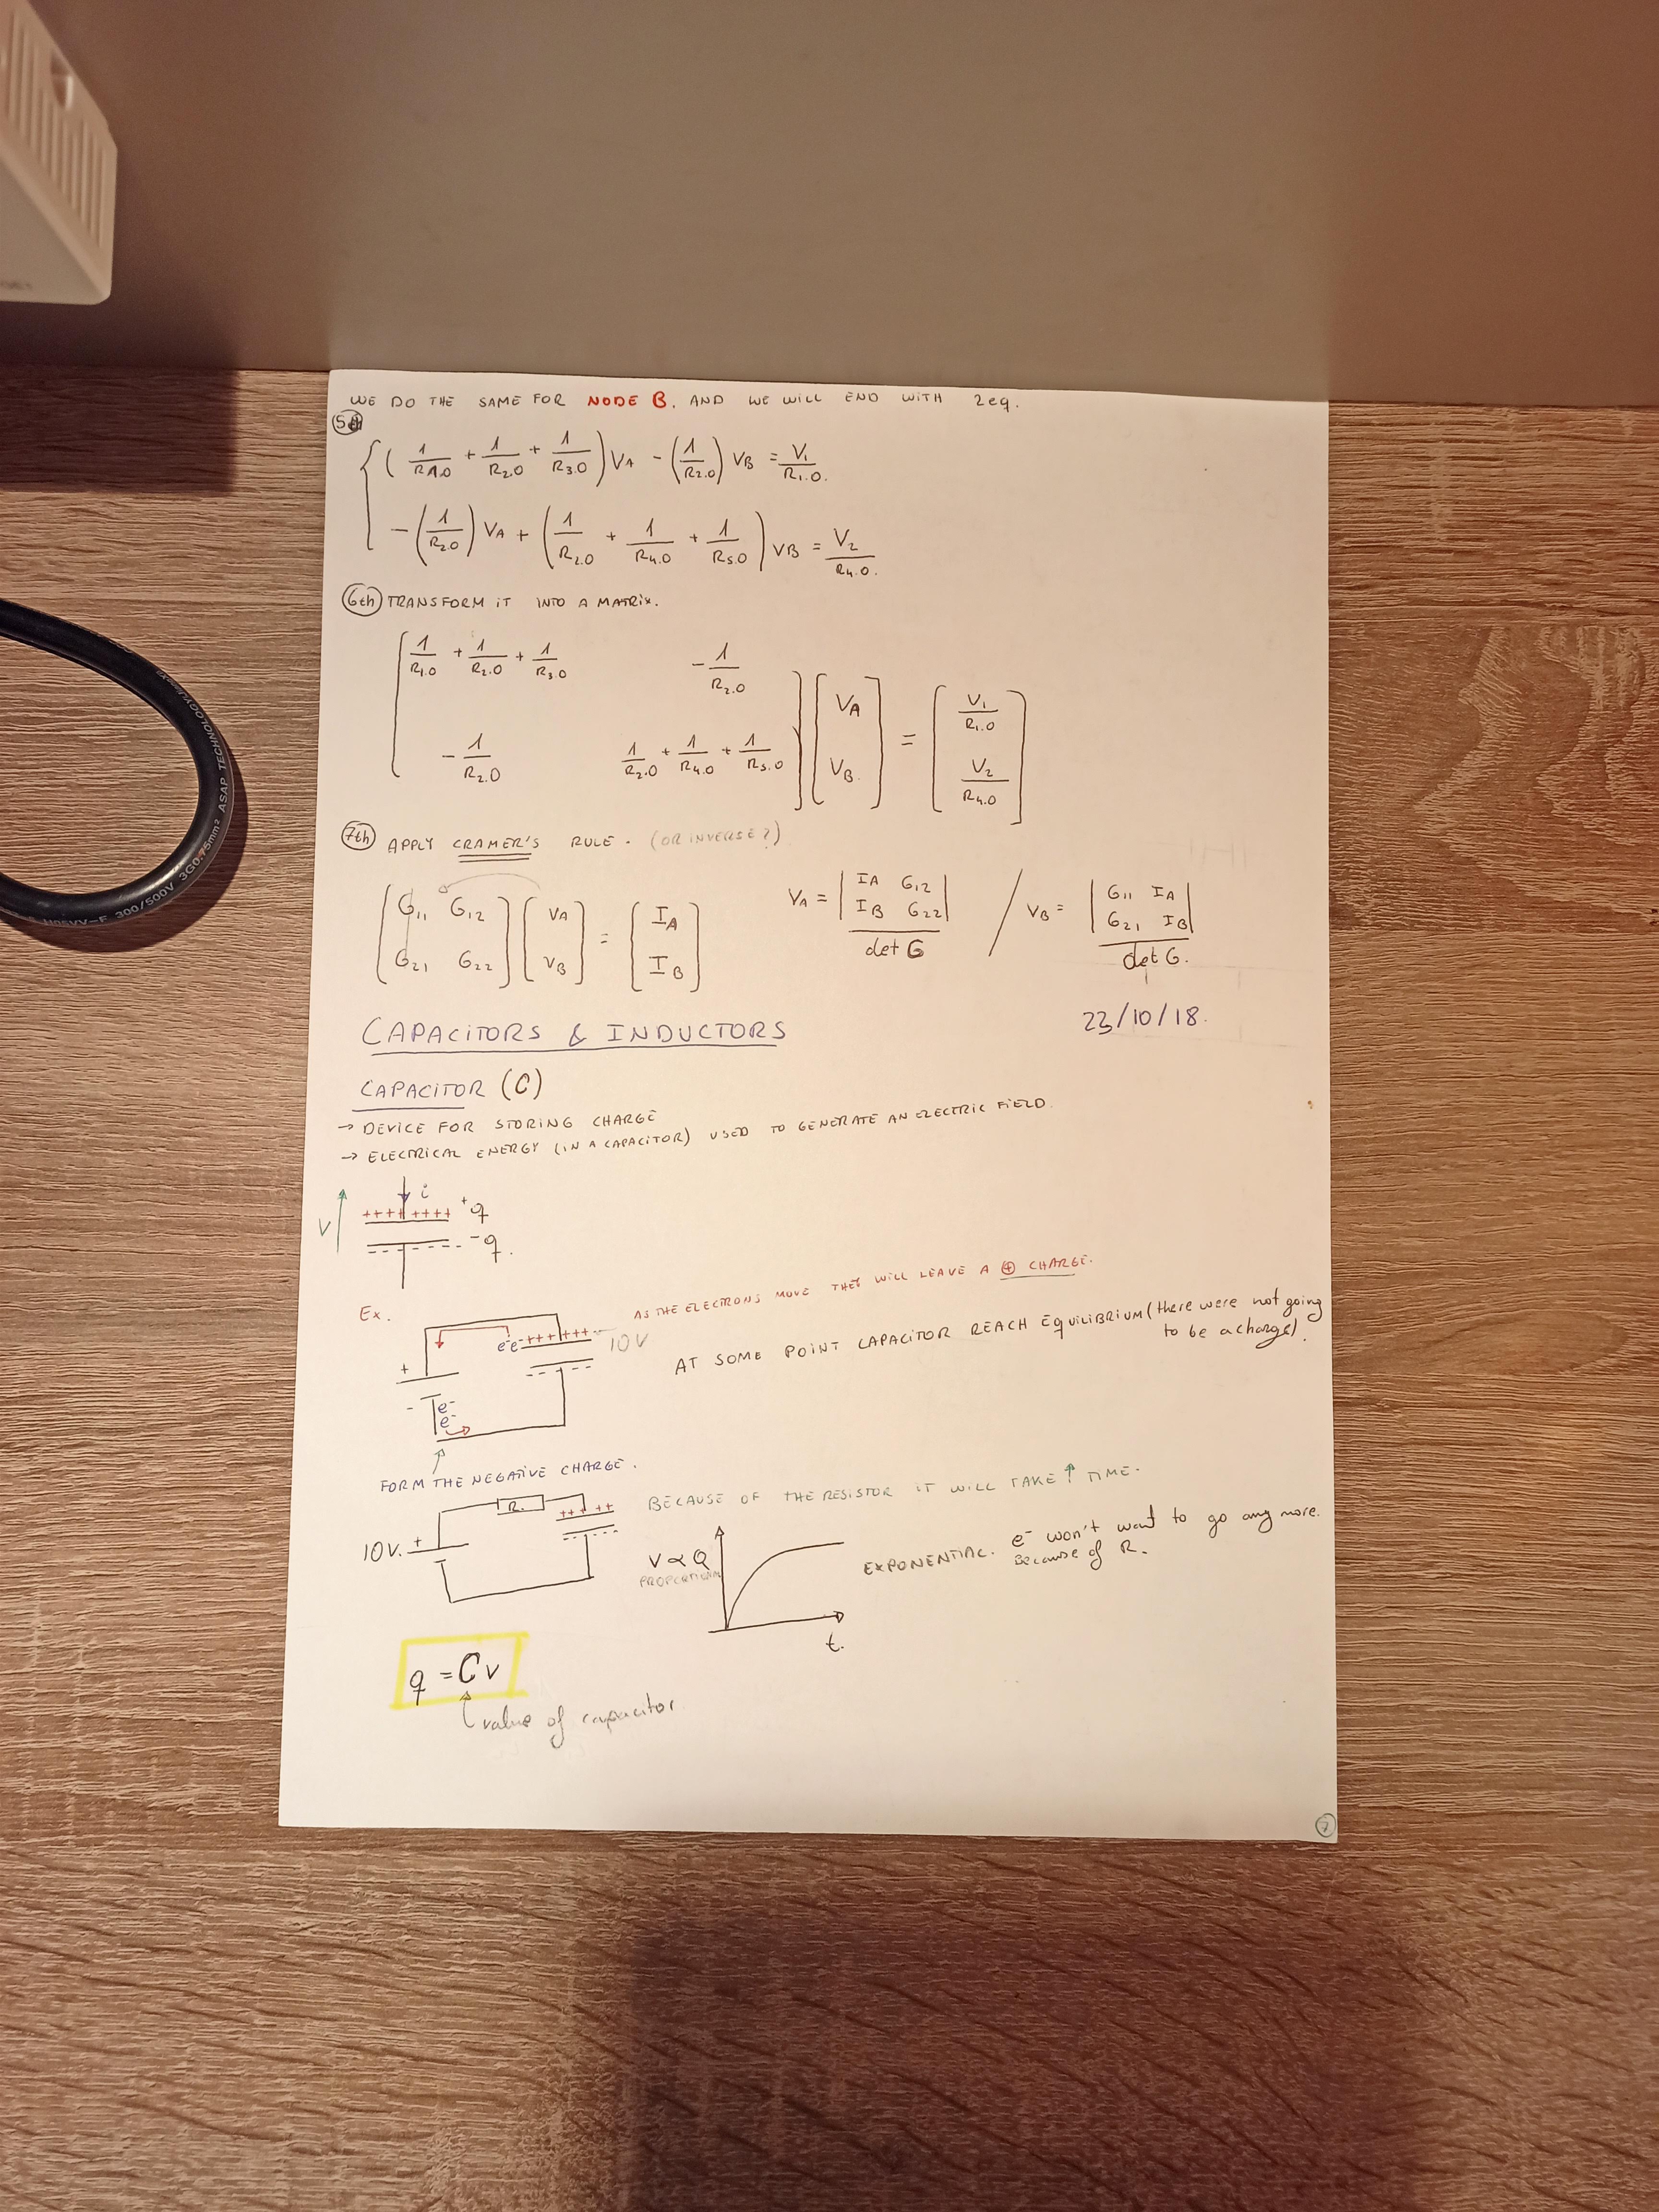 WE DO THE SAME FOR NODE B. AND WE WILL END WITH 2eq.
5
{ (1/R1.0 + 1/R2.0 + 1/R3.0) VA - (1/R2.0) VB = V1/R1.0.
-(1/R2.0) VA + (1/R2.0 + 1/R4.0 + 1/R5.0) VB = V2/R4.0.
6th TRANSFORM iT INTO A MATRIX.
[1/R1.0 + 1/R2.0 + 1/R3.0   -1/R2.0] [VA] = [V1/R1.0]
[-1/R2.0   1/R2.0 + 1/R4.0 + 1/R5.0] [VB.] [V2/R4.0]
7th APPLY CRAMER'S RULE. (OR INVERSE?)
[G11 G12] [VA] = [IA]
[G21 G22] [VB] [IB]
VA = |IA G12| / VB = |G11 IA|
|IB G22| |G21 IB|
det G det G.
23/10/18.
CAPACiTORS & INDUCTORS
CAPACITOR (C)
→ DEVICE FOR STORING CHARGE
→ ELECTRICAL ENERGY (IN A CAPACiTOR) USED TO GENERATE AN ELECTRIC FiELD.
i
++++ ++++ +q
V
------- -q.
Ex.
AS THE ELECTRONS MOVE THEY WILL LEAVE A ⊕ CHARGE.
e-e- +++ +++- 10V
AT SOME POiNT CAPACiTOR REACH EQUiLiBRiUM (there were not going
to be a charge).
+
-
e-
e-
FORM THE NEGATIVE CHARGE.
R.
+++ ++
BECAUSE OF THE RESISTOR IT WILL TAKE ↑ TIME.
10V. +
V ∝ Q
PROPORTIONAL
t.
EXPONENTIAL. e- won't want to go any more.
Because of R.
q = Cv
value of capacitor.
7
H05VV-F 300/500V 3G0.75mm² ASAP TECHNOLOGY